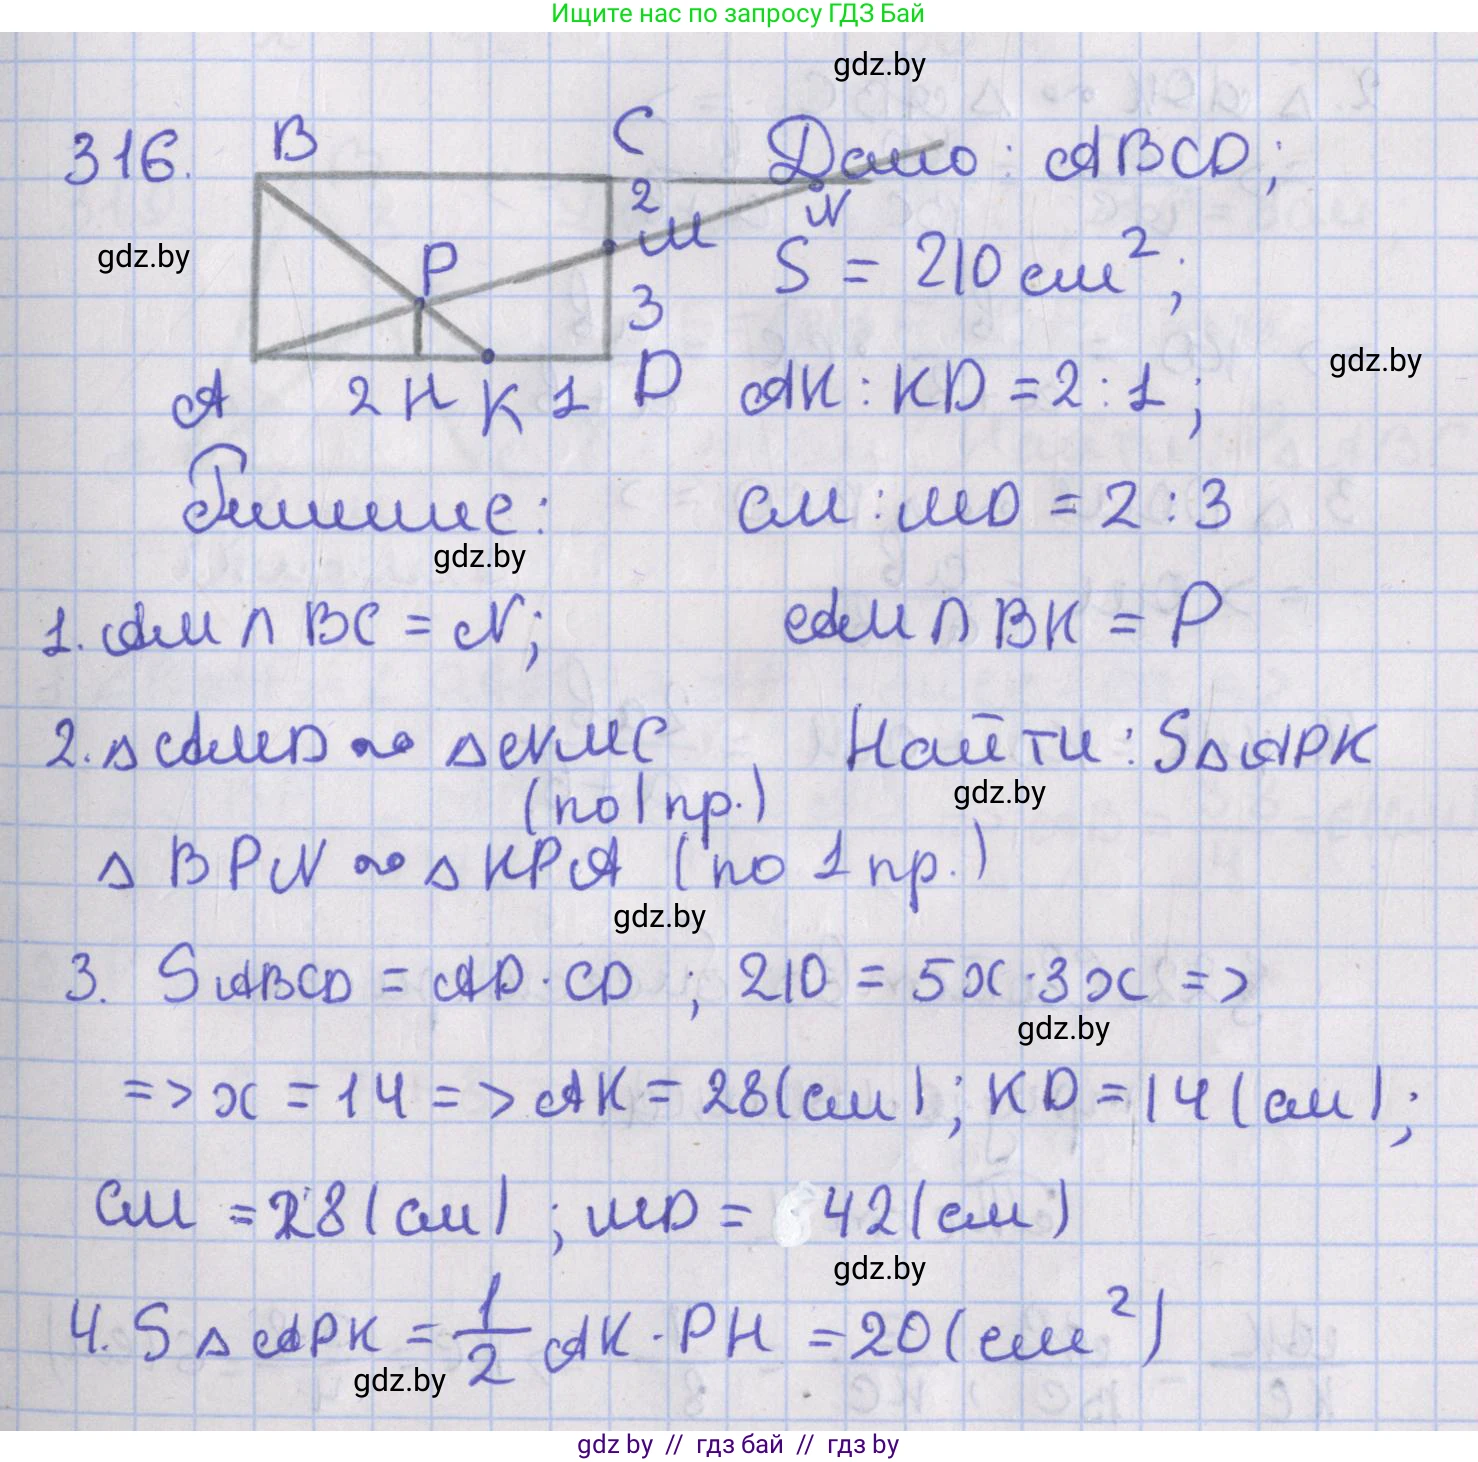 Ищите нас по запросу ГДЗ Бай
gdz.by
316.
B
C
Дано: ABCD;
2
M
N
gdz.by
P
S = 210 см²;
3
gdz.by
A 2 H K 1 D
AK : KD = 2 : 1;
Решение:
CM : MD = 2 : 3
gdz.by
1. AM ∩ BC = N;
AM ∩ BK = P
2. △ AMD ∾ △ NMC
(по 1 пр.)
Найти: S△APK
gdz.by
△ BPN ∾ △ KPA (по 1 пр.)
gdz.by
3. SABCD = AD · CD ; 210 = 5x · 3x =>
gdz.by
=> x = 14 => AK = 28 (см); KD = 14 (см);
CM = 28 (см); MD = 42 (см)
gdz.by
4. S△APK = 1/2 AK · PH = 20 (см²)
gdz.by
gdz by // гдз бай // гдз by